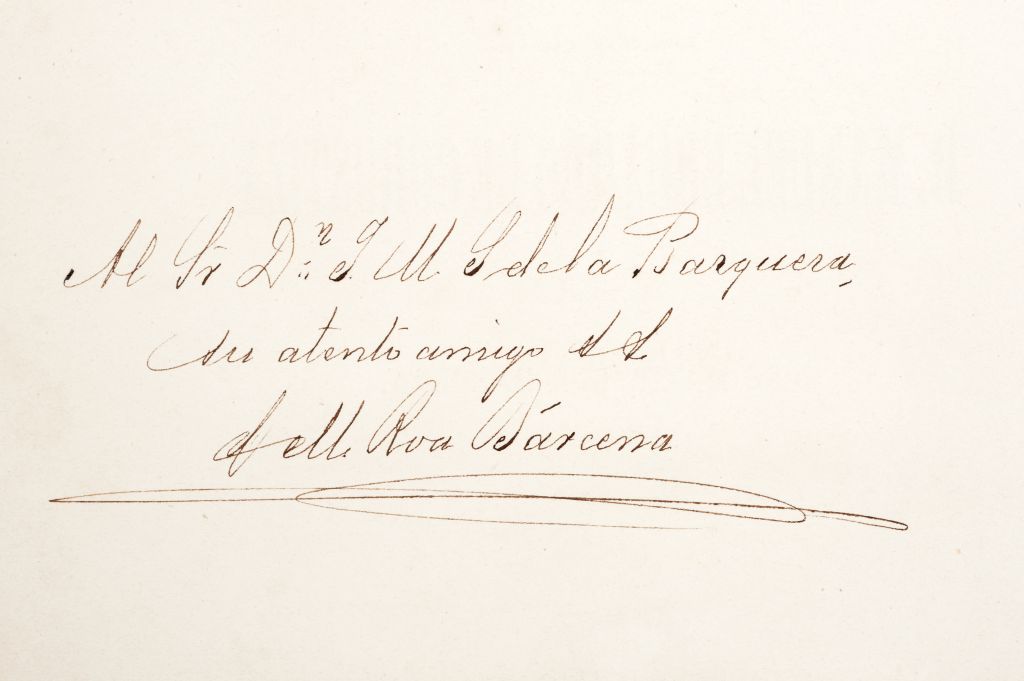 Al Sr Dn. J. M. S de la Barquera,
su atento amigo
J M. Roa Bárcena